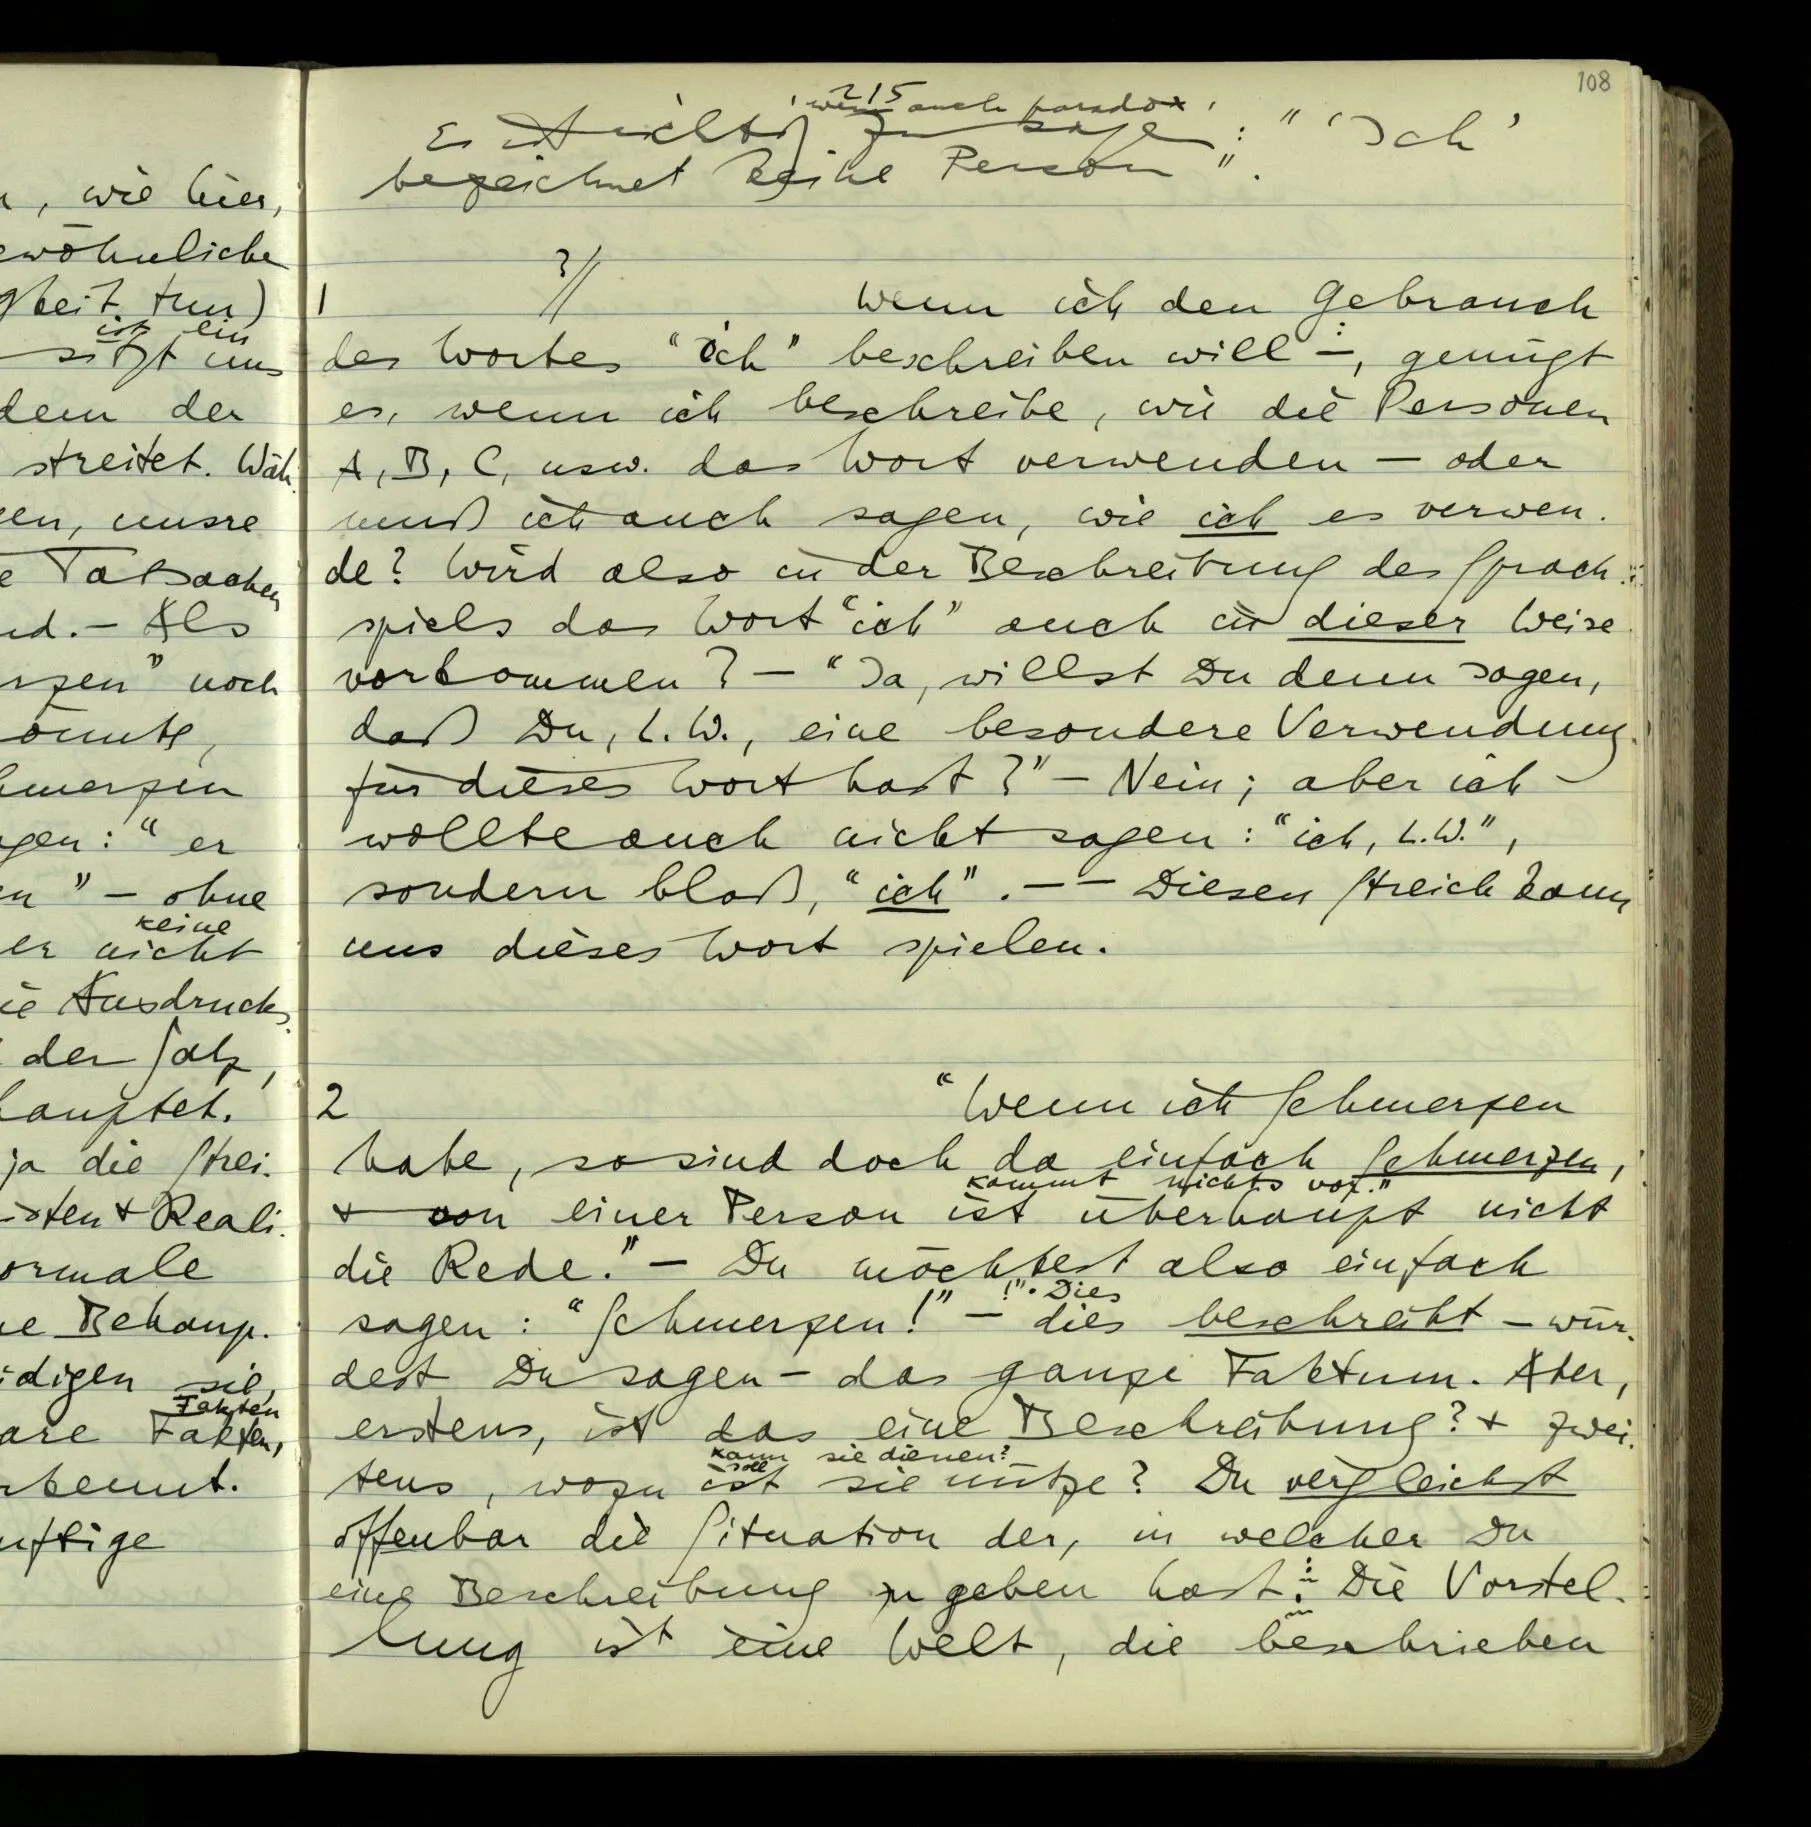 n, wie hier,
ewöhnliche
gkeit tun)
ist ein
sitzt uns
dem der
streitet. Wäh-
en, unsre
e Tatsachen
nd. – Als
rzen" noch
önnte,
hmerzen
gen: "er
en" – ohne
keine
er nicht
ie Ausdrucks-
der Satz,
hauptet.
ja die Strei-
isten & Reali-
ormale
ne Behaup-
idigen sie,
Fakten
are Fakten,
rkennt.
nftige
108
215
, wenn auch paradox,
Es ist richtig zu sagen: "'Ich'
bezeichnet keine Person".
?//
1 Wenn ich den Gebrauch
des Wortes "ich" beschreiben will –, genügt
es, wenn ich beschreibe, wie die Personen
A, B, C, usw. das Wort verwenden – oder
muß ich auch sagen, wie ich es verwen-
de? Wird also in der Beschreibung des Sprach-
spiels das Wort "ich" auch in dieser Weise
vorkommen? – "Ja, willst Du denn sagen,
daß Du, L.W., eine besondere Verwendung
für dieses Wort hast?" – Nein; aber ich
wollte auch nicht sagen: "ich, L.W.",
sondern bloß, "ich". – – Diesen Streich kann
uns dieses Wort spielen.
2 "Wenn ich Schmerzen
habe, so sind doch da einfach Schmerzen,
kommt nichts vor."
& von einer Person ist überhaupt nicht
die Rede." – Du möchtest also einfach
!". Dies
sagen: "Schmerzen!" – dies beschreibt – wür-
dest Du sagen – das ganze Faktum. Aber,
erstens, ist das eine Beschreibung? & zwei-
kann sie dienen?
soll
tens, wozu ist sie nütze? Du vergleichst
offenbar die Situation der, in welcher Du
eine Beschreibung zu geben hast: Die Vorstel-
lung ist eine Welt, die beschrieben